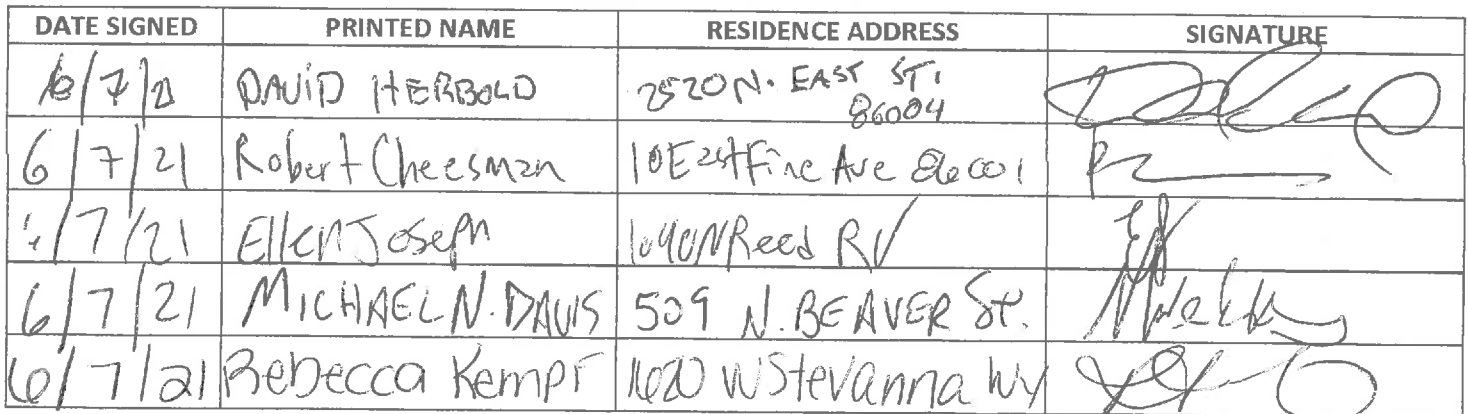 DATE SIGNED PRINTED NAME RESIDENCE ADDRESS SIGNATURE
6/7/21 DAVID HERBOLD 2520 N. EAST ST.
86004
6/7/21 Robert Cheesman 10 East Fine Ave 86001
/7/21 Ellen Joseph N Reed RV
6/7/21 MICHAEL N. DAVIS 509 N. BEAVER St.
6/7/21 Rebecca Kempf 1620 W Stevanna Wy